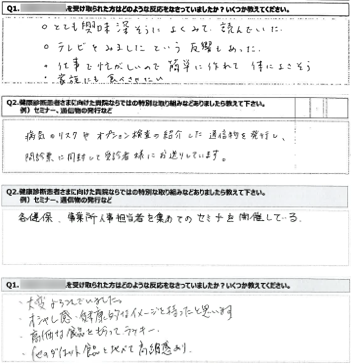 Q1. を受け取られた方はどのような反応をなさっていましたか？いくつか教えてください。
○ とても興味深そうに よくみて、読んでいた。
○ テレビとみました という 反響もあった。
○ 仕事で忙しいので 簡単に作れて 体によさそう
○ 家族にも 食べさせたい
Q2. 健康診断患者さまに向けた貴院ならではの特別な取り組みなどありましたら教えて下さい。
例）セミナー、通信物の発行など
病気のリスクや オプション検査の紹介した 通信物を発行し、
問診票に同封して 受診者様にお送りしています。
Q2. 健康診断患者さまに向けた貴院ならではの特別な取り組みなどありましたら教えて下さい。
例）セミナー、通信物の発行など
各健保、事業所人事担当者を集めての セミナーを開催している。
Q1. を受け取られた方はどのような反応をなさっていましたか？いくつか教えてください。
・大変よろこんでいました。
・オシャレ感・健康的なイメージを持ったと思います
・高価な食品をもらってラッキー。
・他のダイエット食品と比べて高級感あり。